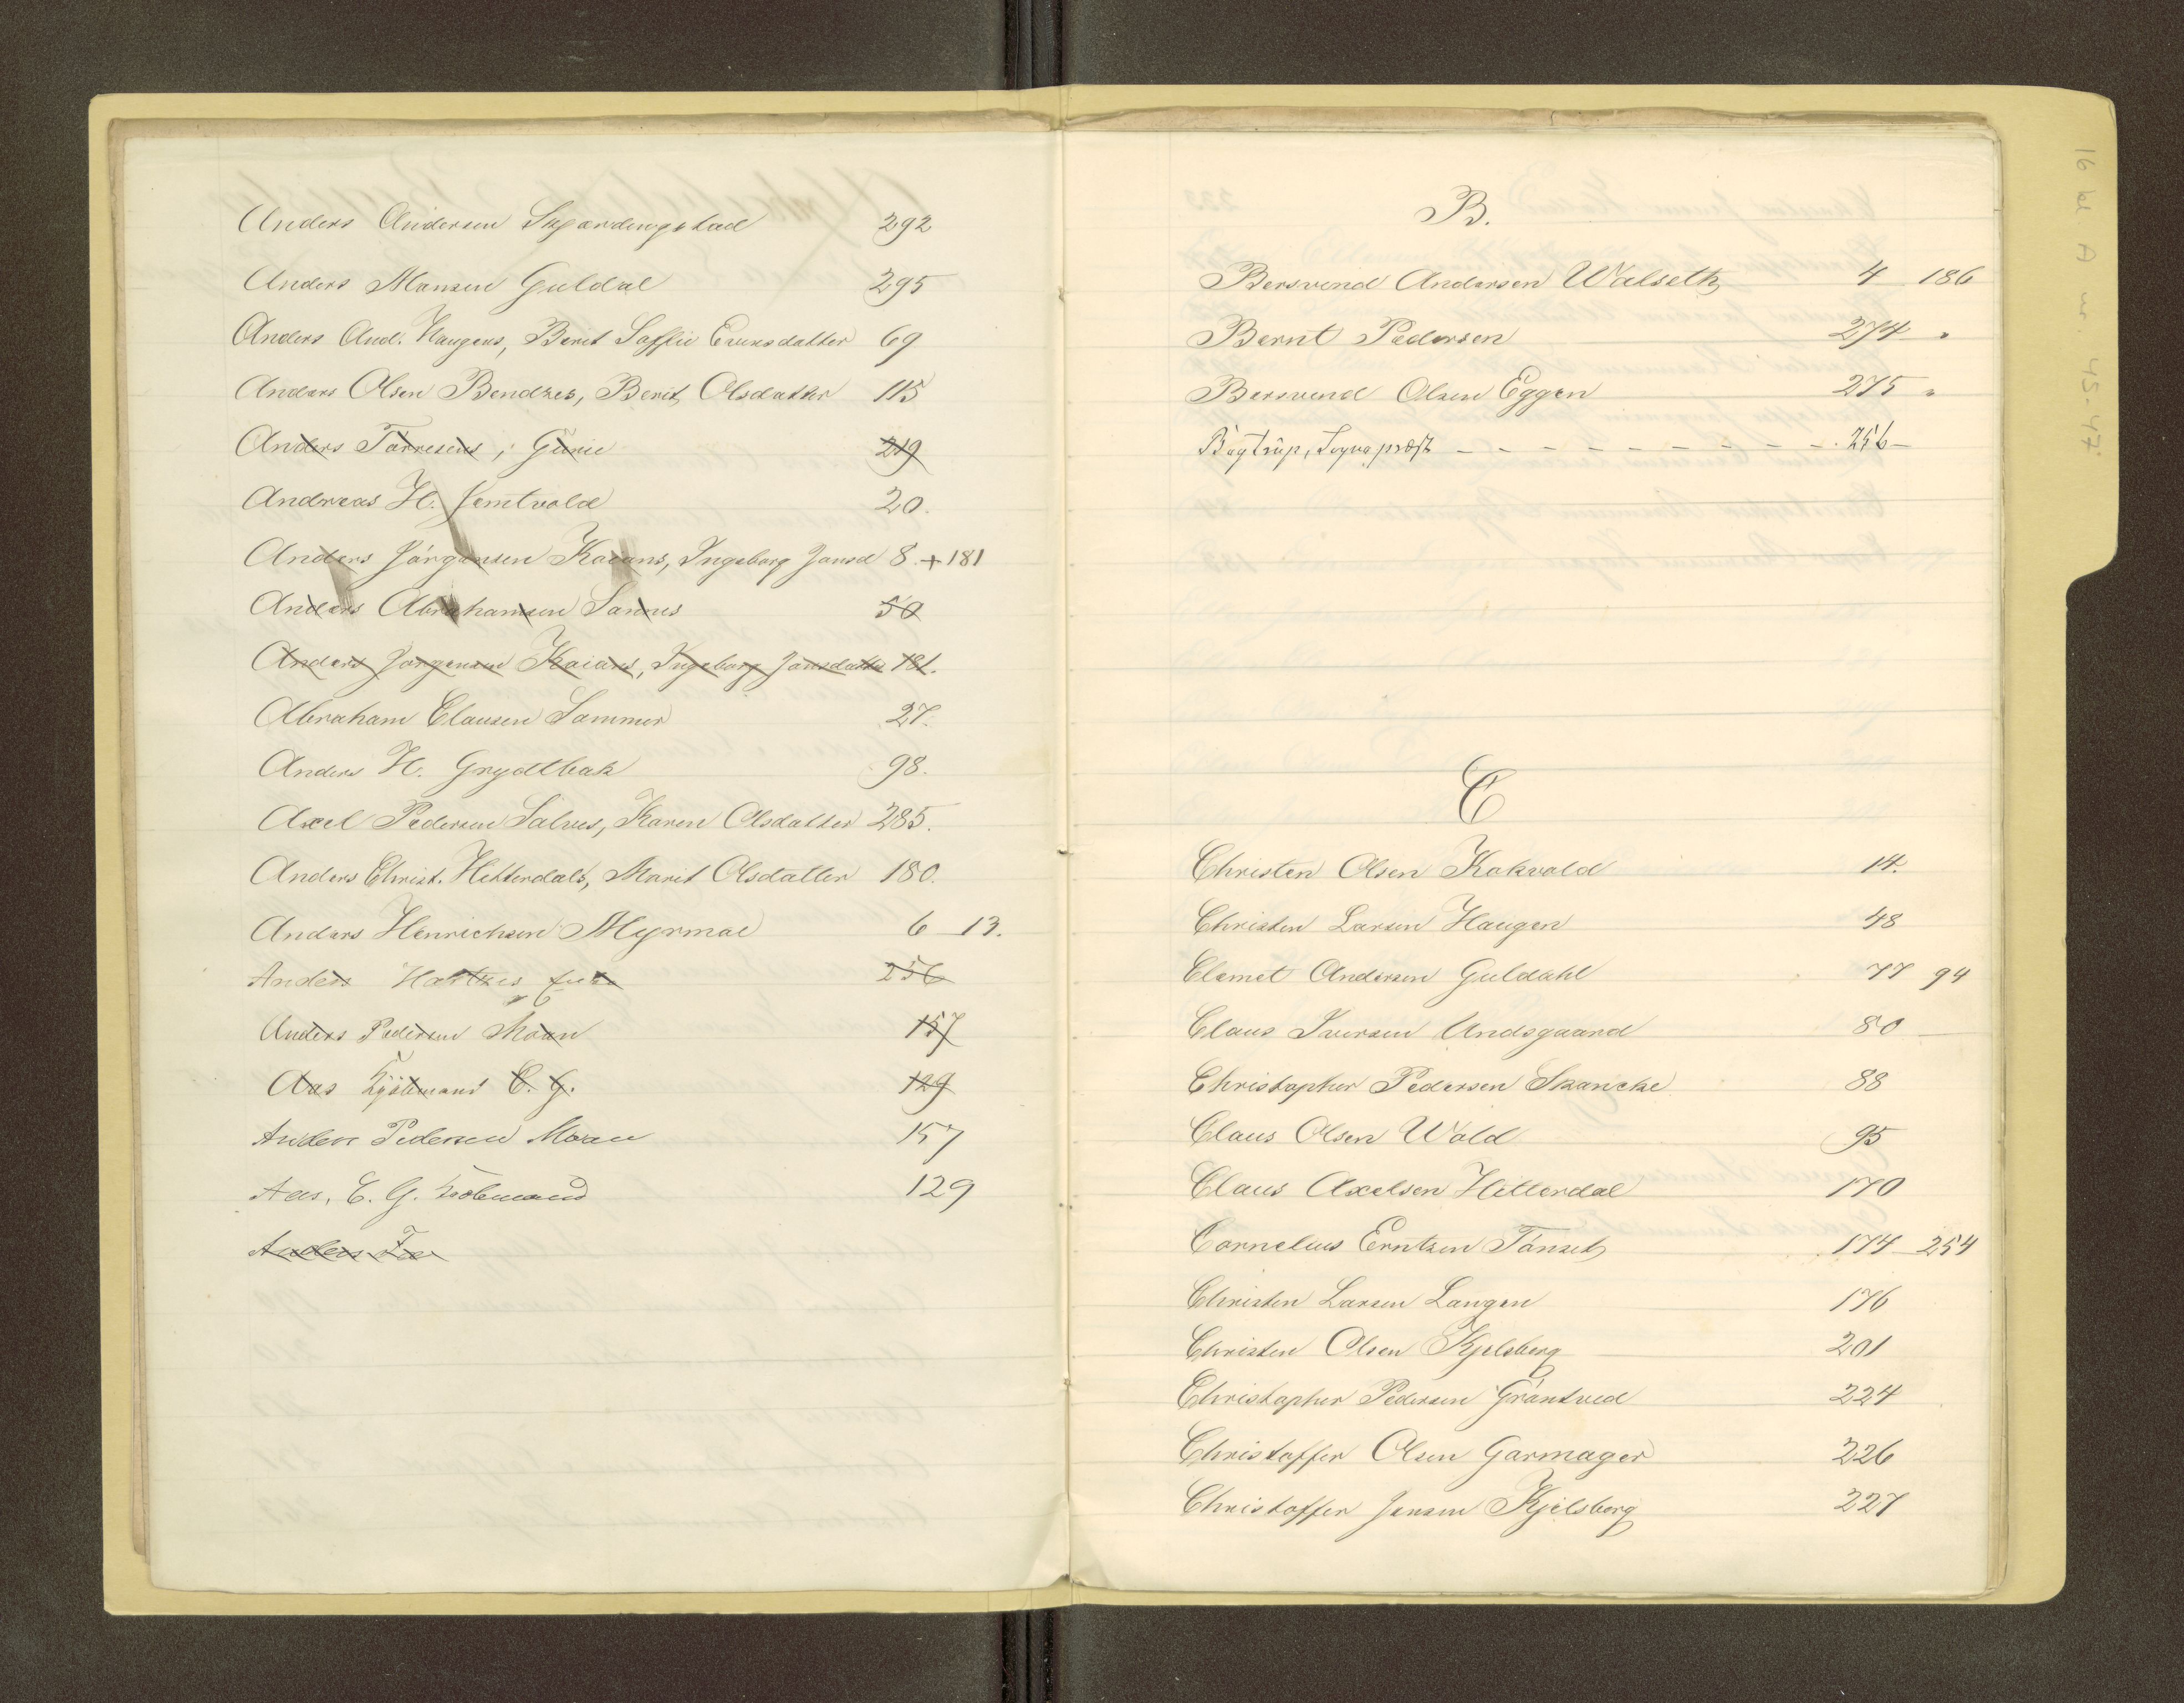 Anders Andersen Skjærdingstad 292
Anders Monsen Guldal 295
Anders And. Haugens, Berit Soffie Ernnsdatter 69
Anders Olsen Bendzes, Berit Olsdatter 115
Anders Tørresens, Gurie 219
Andreas H. Jemtvold 20.
Anders Jørgensen Kaians, Ingeborg Jonsd 8. + 181
Anders Abrahamsen Sannes 50
Anders Jørgensen Kaians, Ingeborg Jonsdatter 181.
Abraham Clausen Sommer 27.
Anders H. Grydtbak 98.
Axel Pedersen Galnes, Karen Olsdatter 285.
Anders Christ. Hitterdals, Marit Olsdatter 180.
Anders Henrichsen Myrmoe 6 13.
Anders 256
Anders Pedersen Moan 157
Aas Kjøbmand E. G. 129
Anders Pedersen Moan 157
Aas, E. G. Kjøbmand 129
Anders
B.
Bersvend Andersen Walseth 4 186
Bernt Pedersen 274 "
Bersvend Olsen Eggen 275 "
Bugtrup, Sognepræst - - - - - - - - - 256 -
C
Christen Olsen Kokvold 14.
Christen Larsen Haugen 48
Clemet Andersen Guldahl 77 94
Claus Iversen Undsgaard 80
Christopher Pedersen Skancke 88
Claus Olsen Wold 95
Claus Axelsen Hitterdal 170
Cornelius Erntzen Tønset 174 254
Christen Larsen Langen 176
Christen Olsen Kjelsberg 201
Christopher Pedersen Grøntved 224
Christoffer Olsen Garmager 226
Christoffer Jensen Kjelsberg 227
16 bd A nr. 45-47